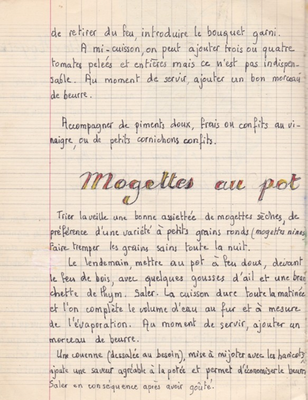 de retirer du feu, introduire le bouquet garni.
A mi-cuisson, on peut ajouter trois ou quatre
tomates pelées et entières mais ce n'est pas indispen-
sable. Au moment de servir, ajouter un bon morceau
de beurre.
Accompagner de piments doux, frais ou confits au vi-
naigre, ou de petits cornichons confits.
Mogettes au pot
Trier la veille une bonne assiettée de mogettes sèches, de
préférence d'une variété à petits grains ronds (mogettes nines)
Faire tremper les grains sains toute la nuit.
Le lendemain, mettre au pot à feu doux, devant
le feu de bois, avec quelques gousses d'ail et une bro
chette de thym. Saler. La cuisson dure toute la matinée
et l'on complète le volume d'eau au fur et à mesure
de l'évaporation. Au moment de servir, ajouter un
morceau de beurre.
Une couenne (dessalée au besoin), mise à mijoter avec les haricots,
ajoute une saveur agréable à la potée et permet d'économiser le beurre
Saler en conséquence après avoir goûté.